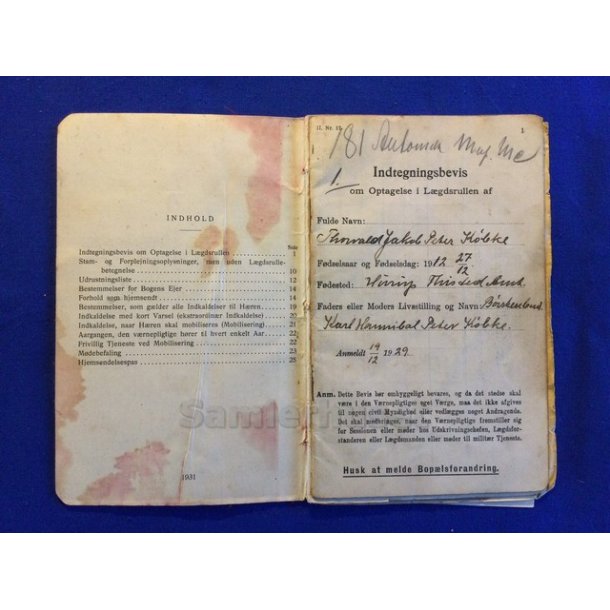 INDHOLD
Side
Indtegningsbevis om Optagelse i Lægdsrullen ........ 1
Stam- og Forplejningsoplysninger, men uden Lægdsrulle-
betegnelse ........ 10
Udrustningsliste ........ 12
Bestemmelser for Bogens Ejer ........ 14
Forhold som hjemsendt ........ 14
Bestemmelser, som gælder alle Indkaldelser til Hæren ........ 19
Indkaldelse med kort Varsel (ekstraordinær Indkaldelse) ........ 20
Indkaldelse, naar Hæren skal mobiliseres (Mobilisering) ........ 21
Aargangen, den værnepligtige hører til hvert enkelt Aar ........ 22
Frivillig Tjeneste ved Mobilisering ........ 22
Mødebefaling ........ 23
Hjemsendelsespas ........ 25
1931
1
181
1.
Indtegningsbevis
om Optagelse i Lægdsrullen af
Fulde Navn:
Thorvald Jakob Peter Kölbke
Fødselsaar og Fødselsdag: 1912 27/12
Fødested: Thisted Amt
Faders eller Moders Livsstilling og Navn:
Karl Hannibal Peter Kölbke.
Anmeldt 19/12 1929
Anm. Dette Bevis bør omhyggeligt bevares, og da det stedse skal
være i den Værnepligtiges eget Værge, maa det ikke afgives
til nogen civil Myndighed eller vedlægges noget Andragende.
Det skal medbringes, naar den Værnepligtige fremstiller sig
for Sessionen eller møder hos Udskrivningschefen, Lægdsfor-
standeren eller Lægdsmanden eller møder til militær Tjeneste.
Husk at melde Bopælsforandring.